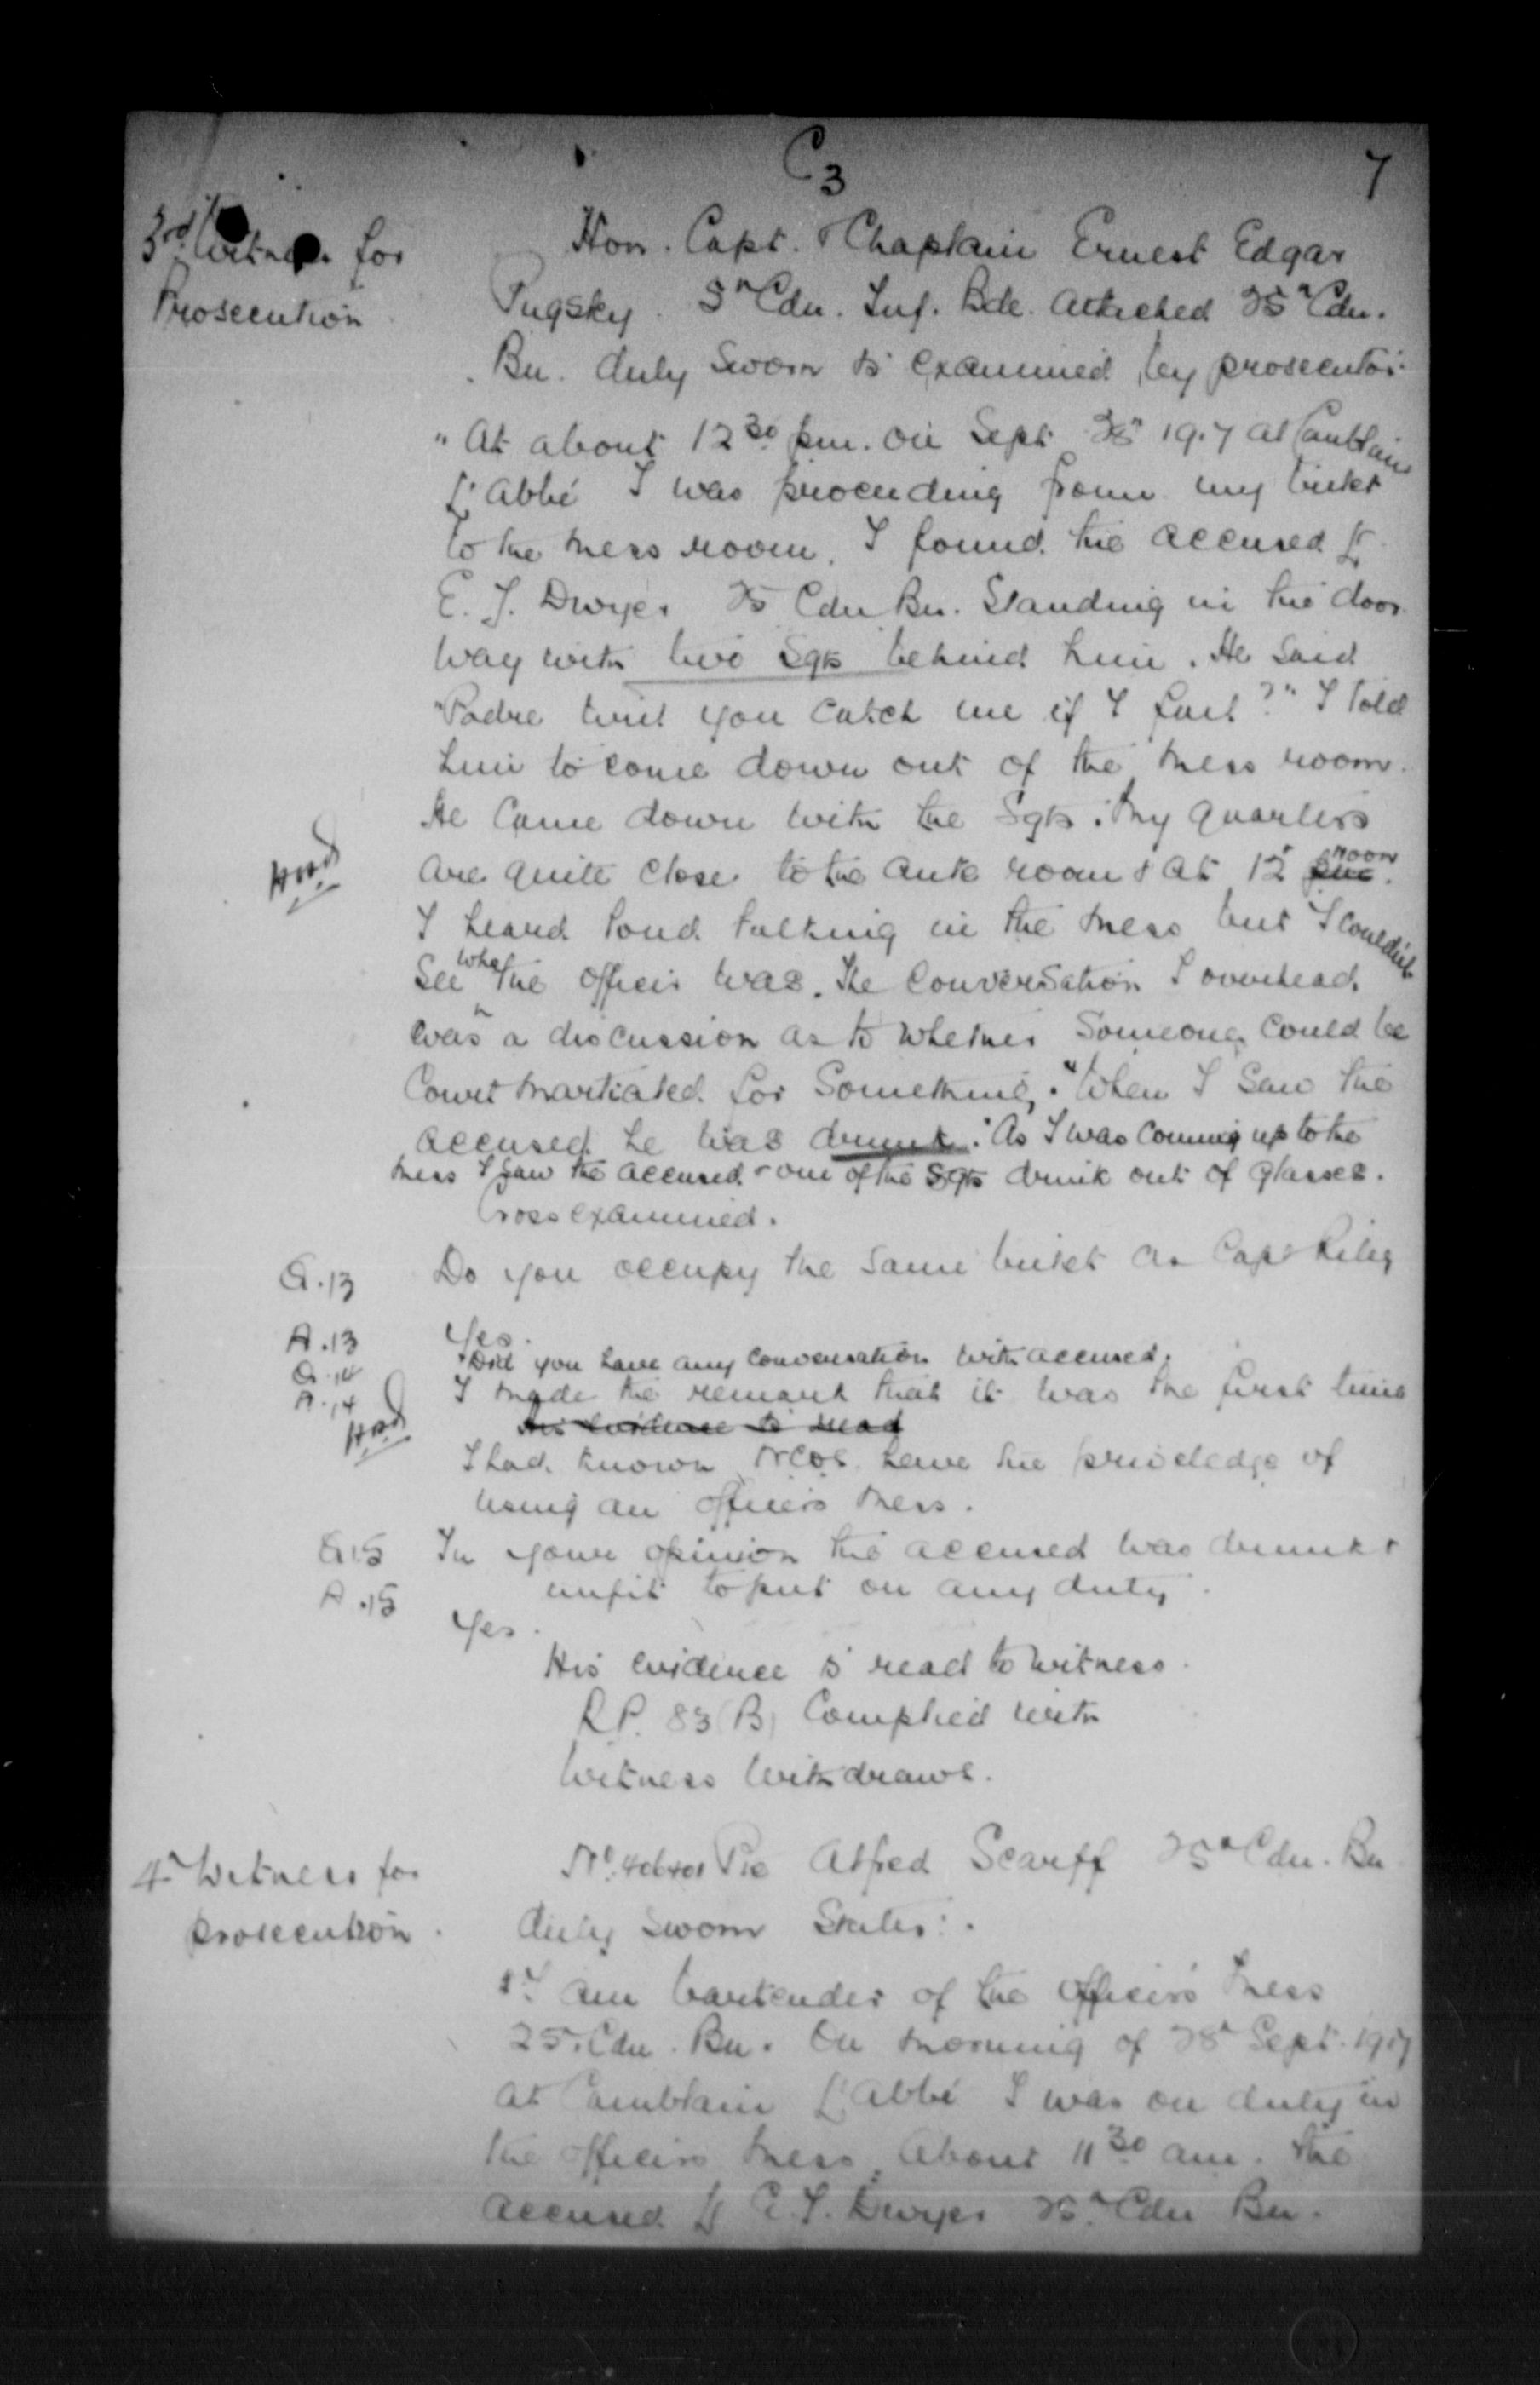 C3 7
3rd Witness for Hon. Capt. & Chaplain Ernest Edgar
Prosecution Pugsley. 5th Cdn. Inf. Bde. attached 25th Cdn.
Bn. duly sworn is examined by prosecutor:
"At about 12 30 pm. on Sept 28th 1917 at Camblain
L'Abbé I was proceeding from my billet
to the mess room. I found the accused Lt
E. J. Dwyer 25 Cdn Bn. Standing in the door
way with two Sgts behind him. He said
"Padre will you catch me if I fall?" I told
him to come down out of the mess room.
He came down with the Sgts. My quarters
are quite close to the ante room & at 12 noon
I heard loud talking in the mess but I couldn't
see who the officer was. The conversation I overhead
was a discussion as to whether someone could be
Court Martialed for something. "When I saw the
accused he was drunk." As I was coming up to the
mess I saw the accused & one of the Sgts drink out of glasses.
Cross examined.
Q.13 Do you occupy the same billet as Capt Riley
A.13 Yes.
Q.14 "Did you have any conversation with accused.
A.14 I made the remark that it was the first time
His evidence is read
I had known NCOs have the priveledge of
using an officers mess.
Q15 In your opinion the accused was drunk &
unfit to put on any duty.
A.15 Yes.
His evidence is read to witness.
R.P. 83 (B) Complied with
Witness withdraws.
4th Witness for No. 406401 Pte Alfred Scarff 25th Cdn. Bn
prosecution. duly sworn States:.
"I am bartender of the officers mess
25th Cdn. Bn. On morning of 28th Sept. 1917
at Camblain L'Abbé I was on duty in
the officers mess about 11 30 am. The
accused Lt E. J. Dwyer 25th Cdn Bn.